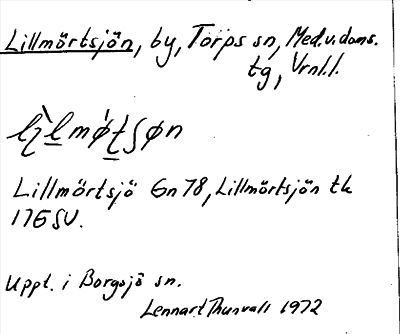 Lillmörtsjön, by, Torps sn, Med.v.doms.
tg, Vrnl.l.
Lillmörtsjö Gn 78, Lillmörtsjön tk
17E SV.
Uppt. i Borgsjö sn.
Lennart Thunvall 1972